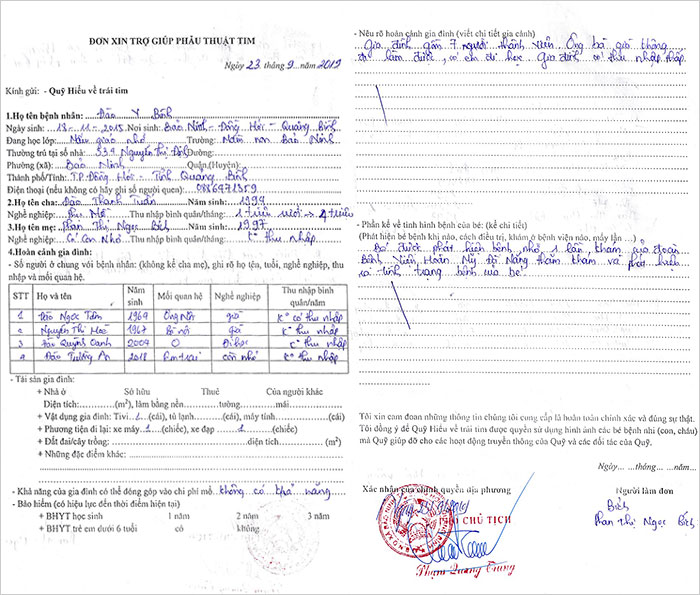 ĐƠN XIN TRỢ GIÚP PHẪU THUẬT TIM
Ngày 23 tháng 9 năm 2019
Kính gửi: - Quỹ Hiểu về trái tim
1.Họ tên bệnh nhân: Đào Y Bình
Ngày sinh: 13-11-2015 Nơi sinh: Bảo Ninh - Đồng Hới - Quảng Bình
Đang học lớp: Mẫu giáo nhỏ Trường: Mầm non Bảo Ninh
Thường trú tại số nhà: 339 Nguyễn Thị Định Đường:
Phường (xã): Bảo Ninh Quận (Huyện):
Thành phố/Tỉnh: TP Đồng Hới - Tỉnh Quảng Bình
Điện thoại (nếu không có hãy ghi số người quen): 0886471359
2.Họ tên cha: Đào Thanh Tuấn Năm sinh: 1994
Nghề nghiệp: Thu nhập bình quân/tháng: 1 triệu rưỡi -> 2 triệu
3.Họ tên mẹ: Phan Thị Ngọc Bích Năm sinh: 1997
Nghề nghiệp: Có Con Nhỏ Thu nhập bình quân/tháng: K° thu nhập
4.Hoàn cảnh gia đình:
- Số người ở chung với bệnh nhân: (không kể cha mẹ), ghi rõ họ tên, tuổi, nghề nghiệp, thu
nhập và mối quan hệ.
STT Họ và tên Năm sinh Mối quan hệ Nghề nghiệp Thu nhập bình quân/năm
1 Đào Ngọc Tâm 1964 Ông Nội già K° có thu nhập
2 Nguyễn Thị Hoà 1967 Bà nội già K° thu nhập
3 Đào Quỳnh Oanh 2004 O Đi học K° thu nhập
4 Đào Tường An 2018 Em trai còn nhỏ K° thu nhập
- Tài sản gia đình:
+ Nhà ở Sở hữu Thuê Của người khác
Diện tích: (m²), làm bằng nền tường mái
+ Vật dụng gia đình: Tivi 1 (cái), tủ lạnh (cái), máy tính (cái)
+ Phương tiện đi lại: xe máy 1 (chiếc), xe đạp 1 (chiếc)
+ Đất đai/cây trồng: diện tích (m²)
+ Những đặc điểm khác:
- Khả năng của gia đình có thể đóng góp vào chi phí mổ: không có khả năng
- Bảo hiểm (có hiệu lực đến thời điểm hiện tại)
+ BHYT học sinh 1 năm 2 năm 3 năm
+ BHYT trẻ em dưới 6 tuổi có không
- Nêu rõ hoàn cảnh gia đình (viết chi tiết gia cảnh)
Gia đình gồm 7 người thành viên Ông bà già không
đi làm được, có em đi học Gia đình có thu nhập thấp
- Phần kể về tình hình bệnh của bé: (kể chi tiết)
(Phát hiện bé bệnh khi nào, cách điều trị, khám ở bệnh viện nào, mấy lần ...)
Bé được phát hiện bệnh nhờ 1 lần khám của đoàn
Bệnh Viện Hoàn Mỹ Đà Nẵng thăm khám và phát hiện
ra tình trạng bệnh của bé
Tôi xin cam đoan những thông tin chúng tôi cung cấp là hoàn toàn chính xác và đúng sự thật.
Tôi đồng ý để Quỹ Hiểu về trái tim được quyền sử dụng hình ảnh các bé bệnh nhi (con, cháu)
mà Quỹ giúp đỡ cho các hoạt động truyền thông của Quỹ và các đối tác của Quỹ.
Ngày... ...tháng... ...năm...
Xác nhận của chính quyền địa phương Người làm đơn
PHÓ CHỦ TỊCH
Bích
Phan Thị Ngọc Bích
Phạm Quang Trung